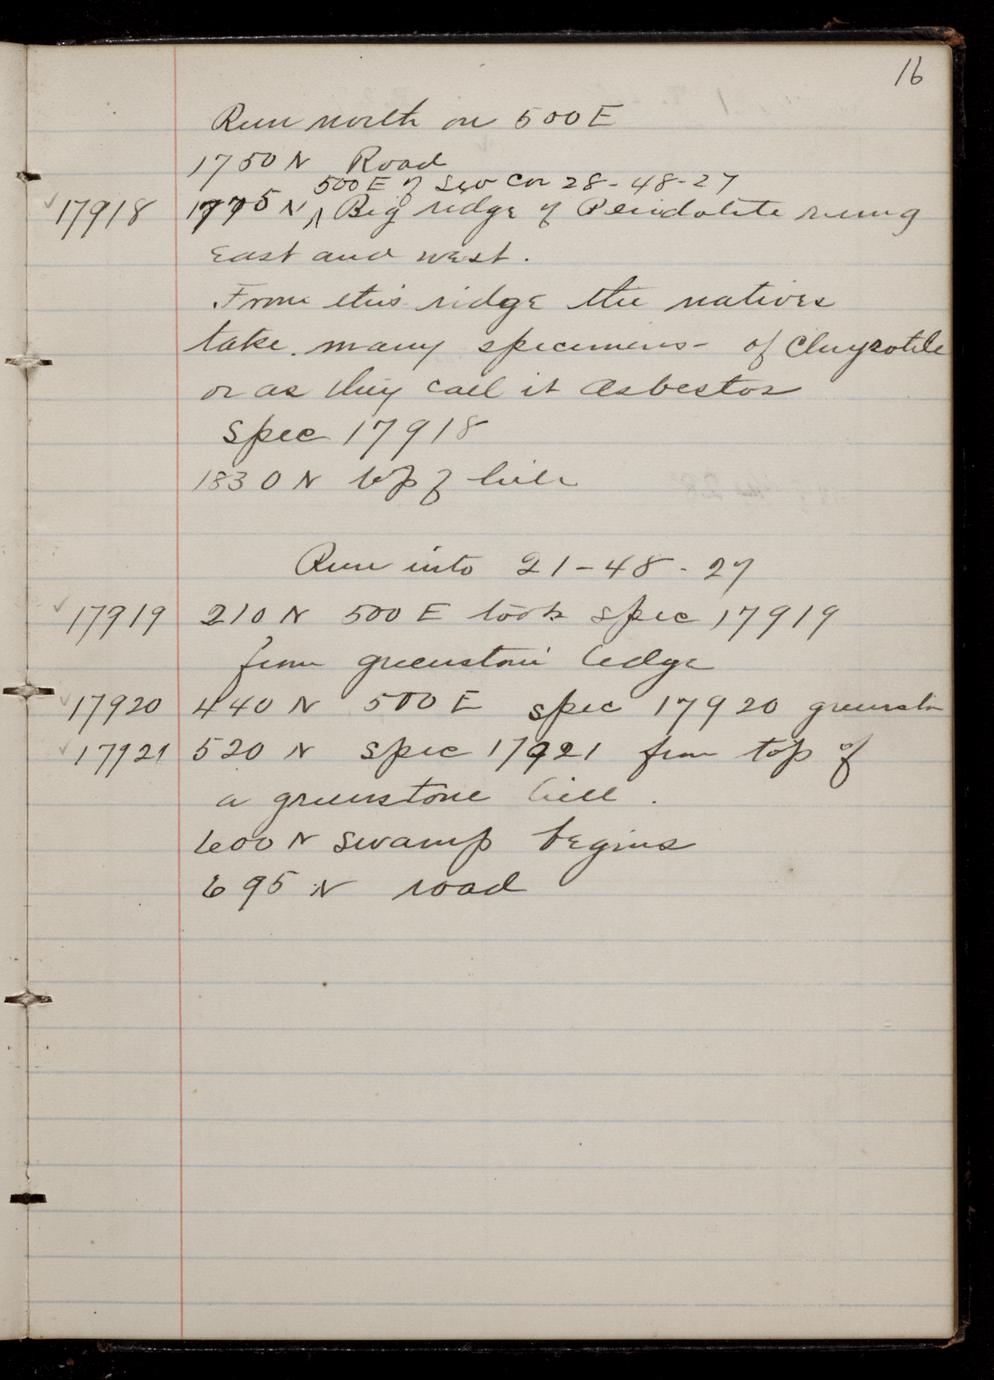 16
Run north on 500 E
1750 N Road
500 E of SW Cor 28-48-27
17918 1775 N ^ Big ridge of Peridotite runing
East and west.
From this ridge the natives
take many specimens - of Chrysotile
or as they call it Asbestos
Spec 17918
1830 N top of hill
Run into 21-48-27
17919 210 N 500 E took spec 17919
from greenstone ledge
17920 440 N 500 E spec 17920 greenstn
17921 520 N spec 17921 from top of
a greenstone hill.
600 N swamp begins
695 N road